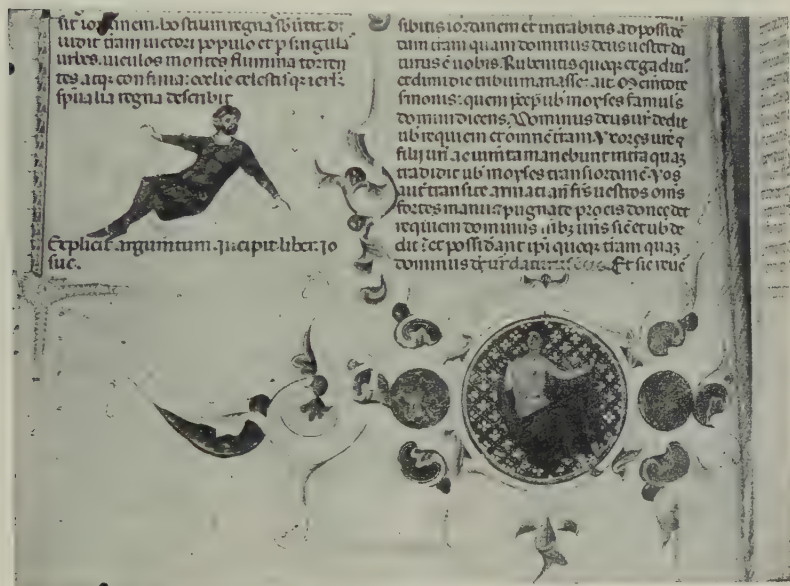 sit iordanem. hostium regna sbūtit. di
uidit tram uictori populo et p singula
urbes. uiculos montes flumina torren
tes atqz confinia: ecclie celestisqz ierlm
spualia regna describit
Explicit argumentum. incipit liber. io
sue.
sibitis iordanem et intrabitis ad possidē
dum tram quam dominus deus uester da
turus ē uobis. Rubenitis quoqz et gaditi
et dimidie tribui manasse: ait. Memētote
smonis: quem p̄cep ub moyses famulꝰ
domini dicens. Dominus deus ur dedit
ub requiem et omnē tram. Vxores ure
filii uri ac iumta manebunt in tra quaz
tradidit ub moyses trans iordanē. Vos
aut transite armati an frs uestros oms
fortes manu: pugnate pro eis donec det
requiem dominus fribz uris sic et ub de
dit: et possideant ipi quoqz tram quaz
dominus Et sic reuē